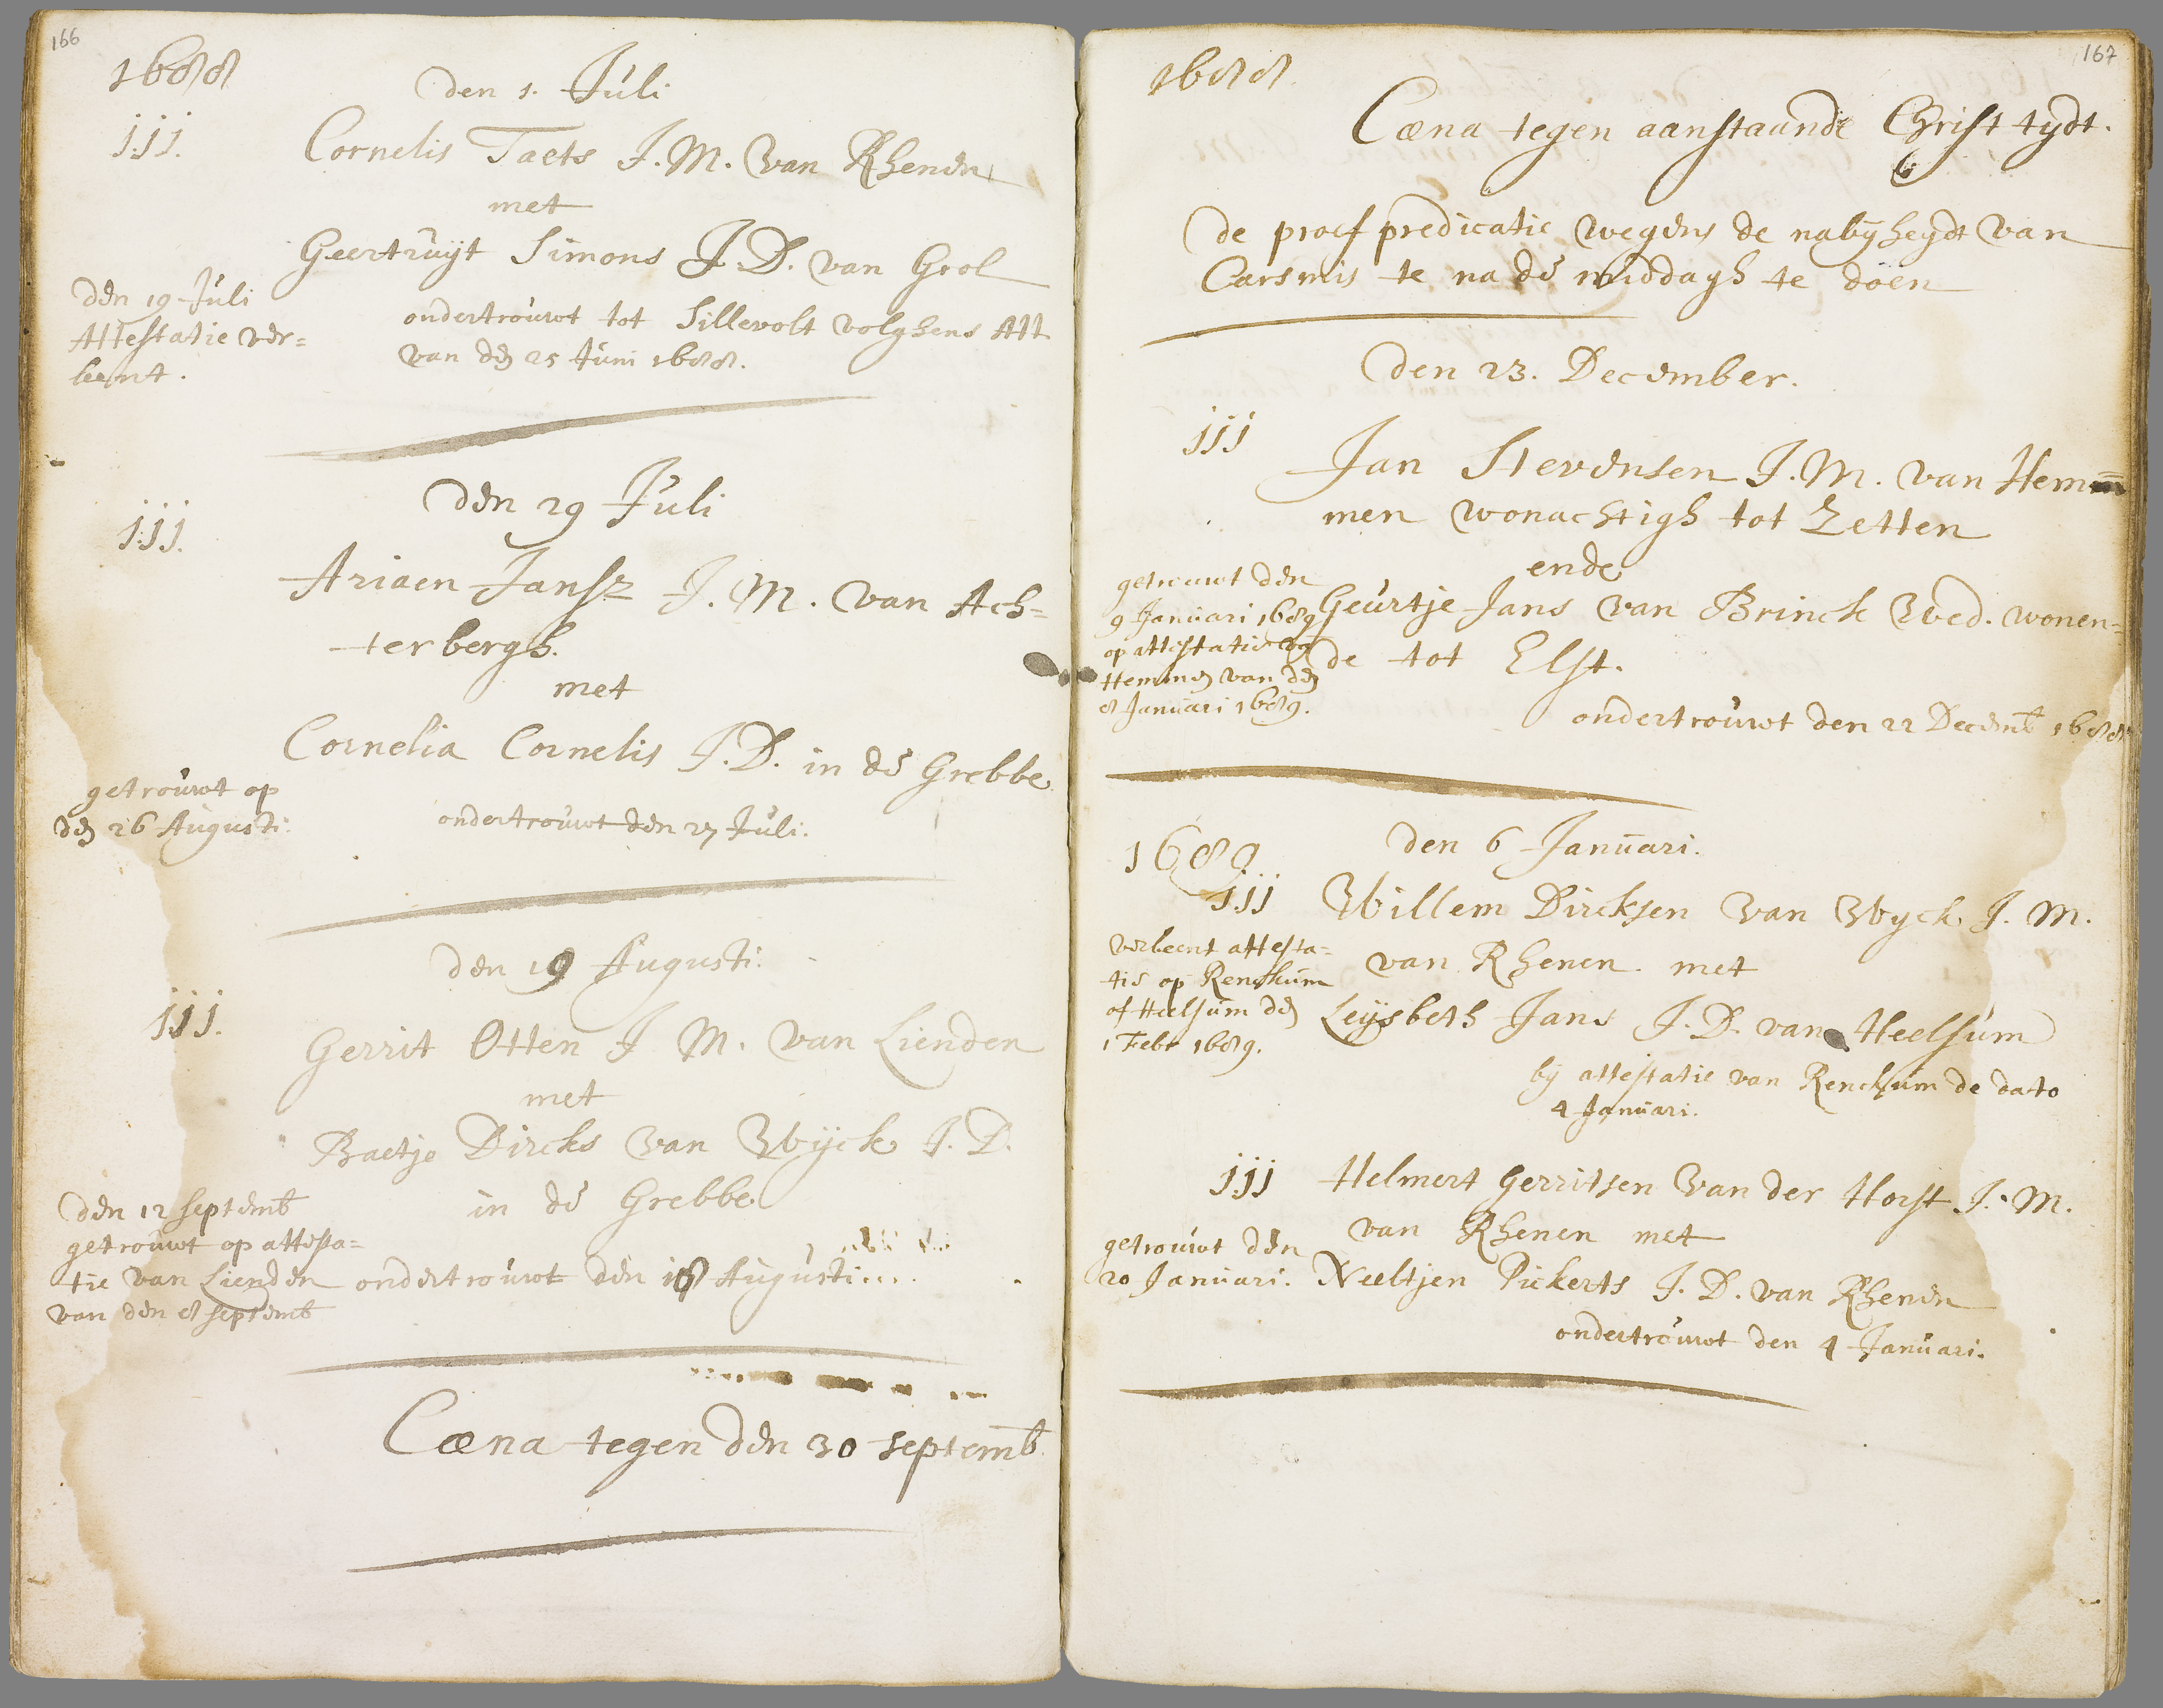 166
1688
den 1. Juli
jjj.
Cornelis Taets J.M. van Rhenen
met
Geertruijt Simons J.D. van Grol
den 19 Juli
Attestatie ver=
leent.
ondertrouwt tot Sillevolt volghens Att
van den 25 Juni 1688.
den 29 Juli
jjj.
Ariaen Jansz J.M. van Ach=
terbergh.
met
Cornelia Cornelis J.D. in de Grebbe
getrouwt op
den 26 Augusti.
ondertrouwt den 27 Juli.
den 19 Augusti.
jjj.
Gerrit Otten J M. van Lienden
met
Baetje Dircks van Wijck J.D.
in de Grebbe
den 12 septemb
getrouwt op attesta=
tie van Lienden
van den 8 septemb
ondertrouwt den 18 Augusti
Cæna tegen den 30 septemb
167
1688
Cæna tegen aanstaande Christ tydt.
de proef predicatie wegens de nabijheydt van
Carsmis te na de middagh te doen
den 23. December.
jjj
Jan Stevensen J.M. van Hem
men wonachtigh tot Zetten
ende
Geurtje Jans van Brinck Wed. wonen=
de tot Elst.
getrouwt den
9 Januari 1689
op attestatie van
Hemmen van den
8 Januari 1689.
ondertrouwt den 22 Decemb 1688
1689
den 6 Januari.
jjj
Willem Dircksen van Wyck J. M.
van Rhenen. met
Leijsbeth Jans J.D. van Heelsum
verleent attesta=
tie op Renchum
of Heelsum den
1 Febr 1689.
bij attestatie van Renchum de dato
4 Januari.
jjj
Helmert Gerritsen van der Horst J.M.
van Rhenen met
Neeltjen Pickerts J.D. van Rhenen
getrouwt den
20 Januari.
ondertrouwt den 4 Januari.